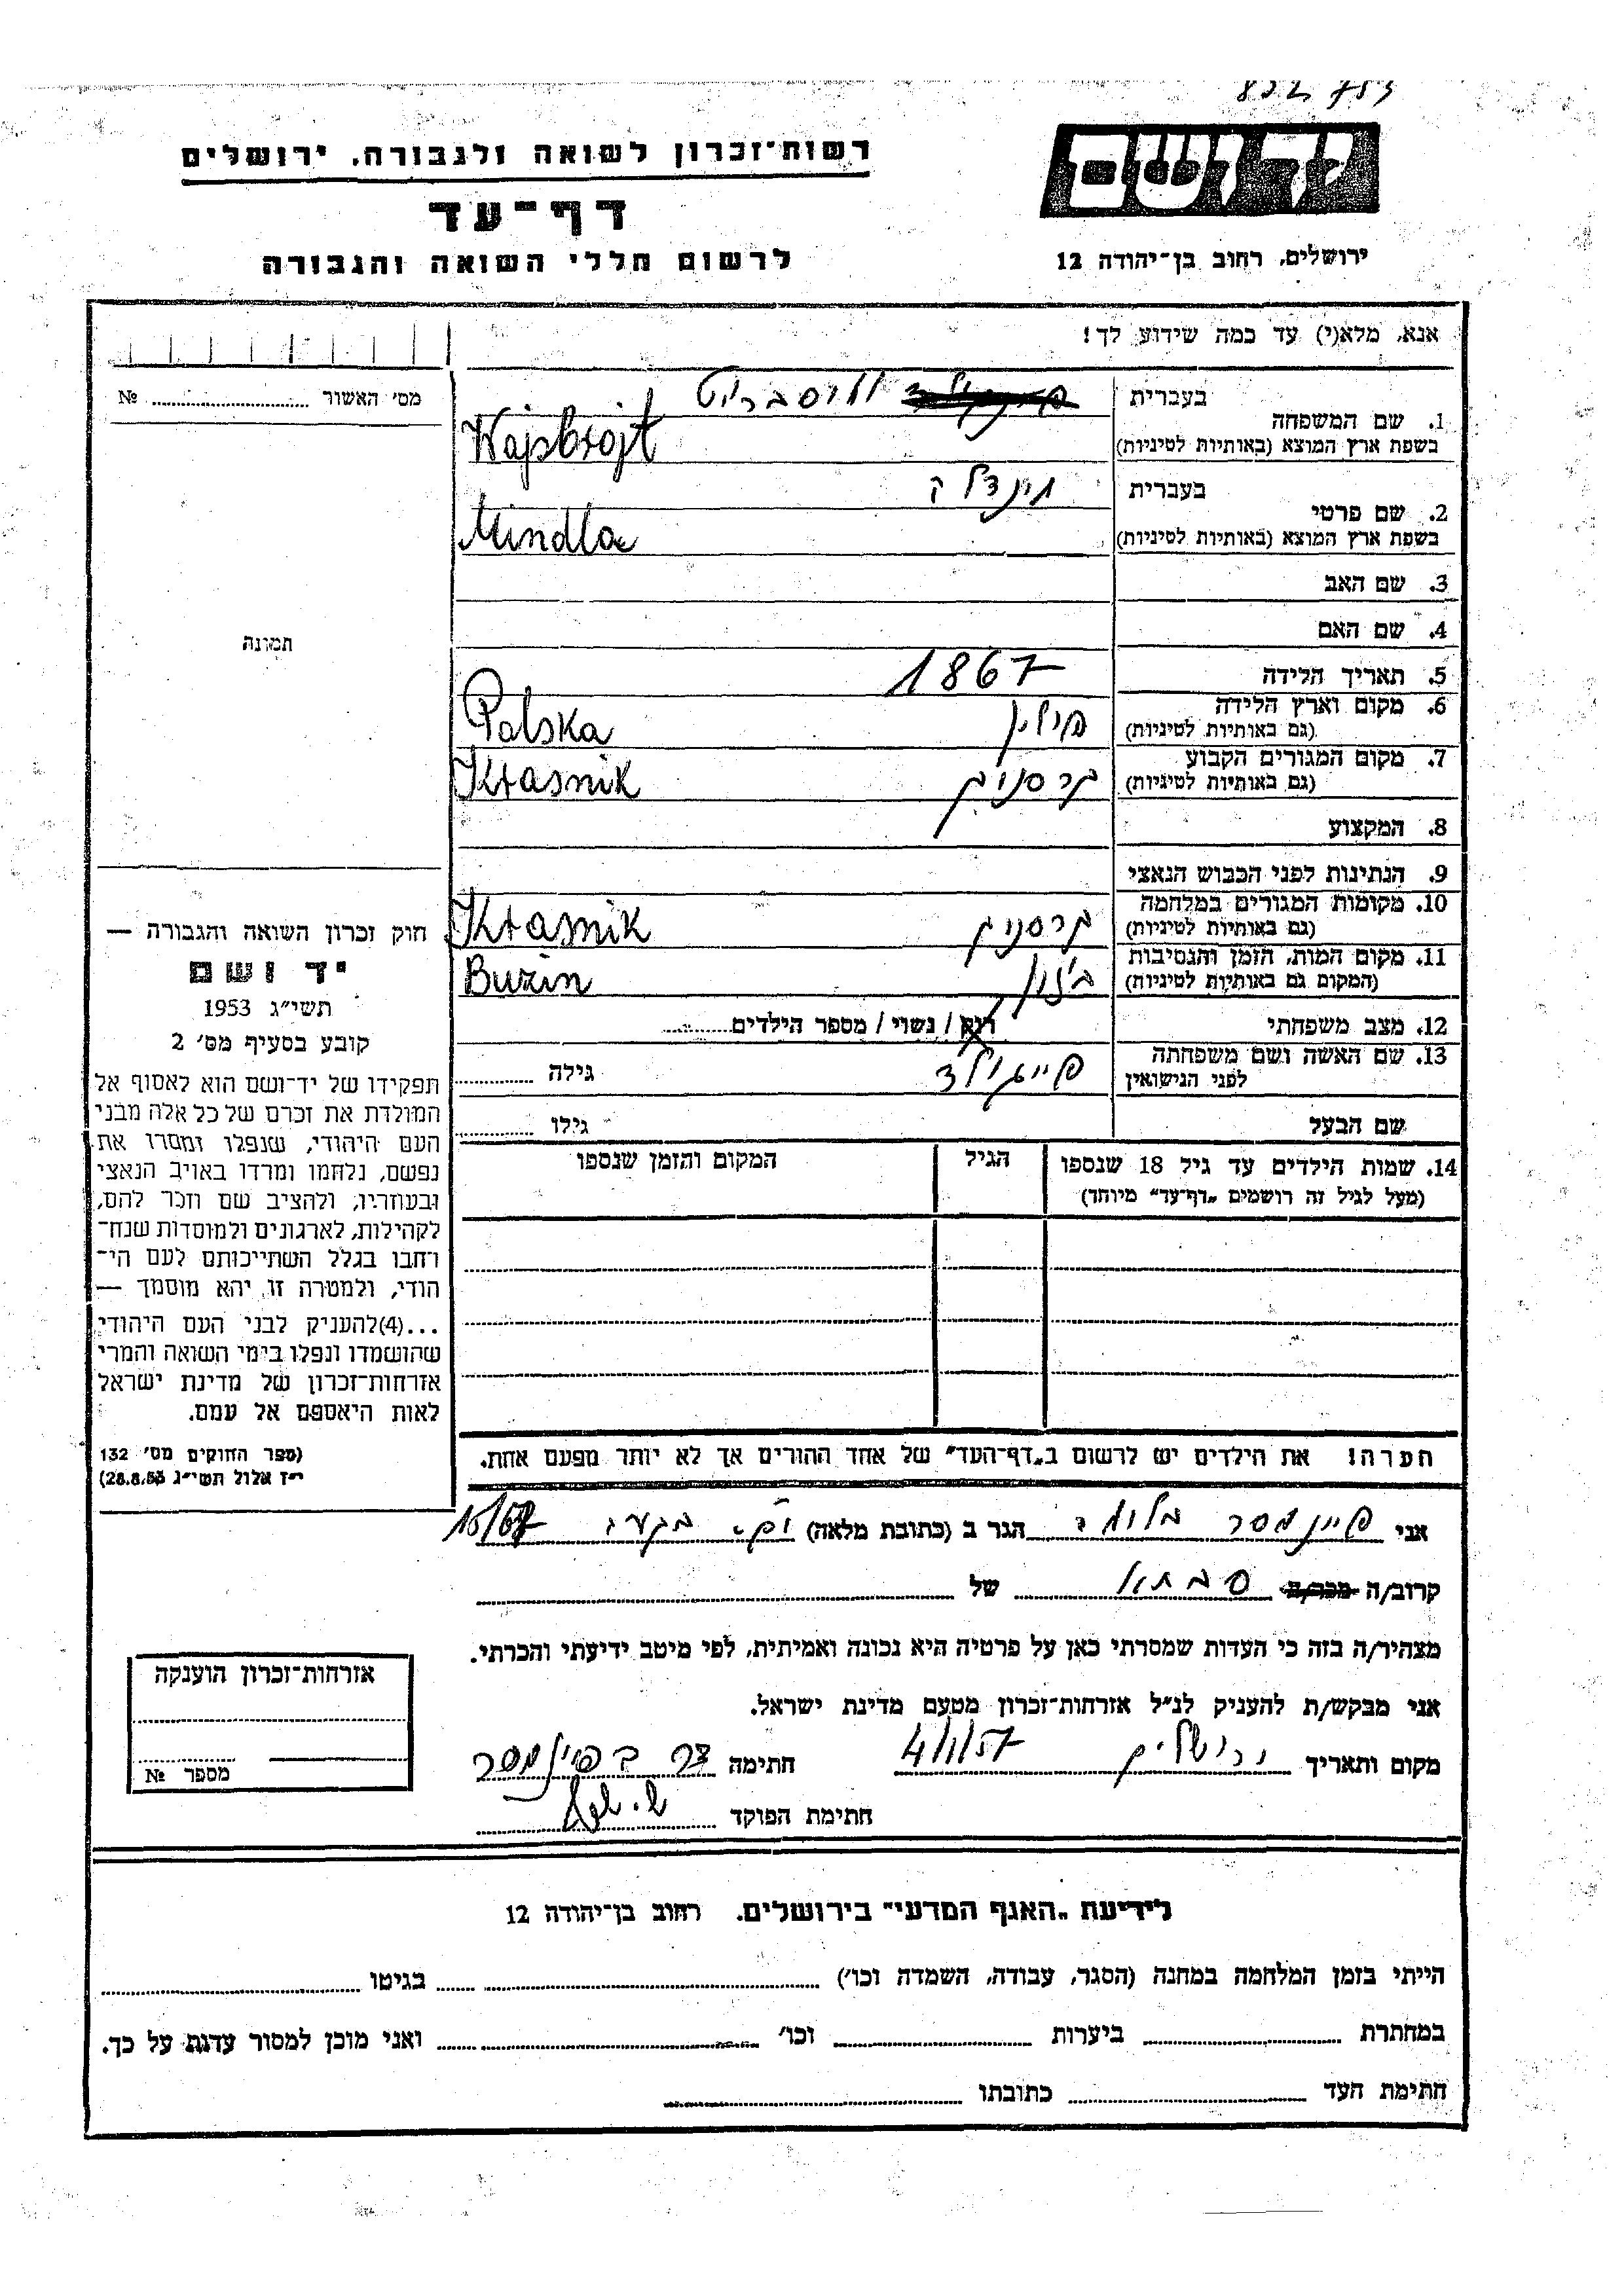 רשות־זכרון לשואה ולגבורה, ירושלים
דף־עד
לרשום חללי השואה והגבורה
יד ושם
ירושלים, רחוב בן־יהודה 12
אנא, מלא(י) עד כמה שידוע לך!
מס׳ האשור № 
1. שם המשפחה
בעברית וויסברויט
בשפת ארץ המוצא (באותיות לטיניות) Wajsbrojt
2. שם פרטי
בעברית מינדלה
בשפת ארץ המוצא (באותיות לטיניות) Mindla
3. שם האב
4. שם האם
5. תאריך הלידה 1867
6. מקום וארץ הלידה פולין Polska
(גם באותיות לטיניות)
7. מקום המגורים הקבוע קרסניק Krasnik
(גם באותיות לטיניות)
8. המקצוע
9. הנתינות לפני הכבוש הנאצי
10. מקומות המגורים במלחמה קרסניק Krasnik
(גם באותיות לטיניות)
11. מקום המות, הזמן והנסיבות Burin
(המקום גם באותיות לטיניות)
12. מצב משפחתי רווק / נשוי / מספר הילדים
13. שם האשה ושם משפחתה פייגולד גילה
לפני הנישואין
שם הבעל גילו
14. שמות הילדים עד גיל 18 שנספו הגיל המקום והזמן שנספו
(מעל לגיל זה רושמים „דף־עד״ מיוחד)
הערה! את הילדים יש לרשום ב„דף־העד״ של אחד ההורים אך לא יותר מפעם אחת.
תמונה
חוק זכרון השואה והגבורה —
יד ושם
תשי״ג 1953
קובע בסעיף מס׳ 2
תפקידו של יד־ושם הוא לאסוף אל
המולדת את זכרם של כל אלה מבני
העם היהודי, שנפלו ומסרו את
נפשם, נלחמו ומרדו באויב הנאצי
ובעוזריו, ולהציב שם וזכר להם,
לקהילות, לארגונים ולמוסדות שנח־
רבו בגלל השתייכותם לעם הי־
הודי, ולמטרה זו יהא מוסמך —
...(4)להעניק לבני העם היהודי
שהושמדו ונפלו בימי השואה והמרי
אזרחות־זכרון של מדינת ישראל
לאות היאספם אל עמם.
(ספר החוקים מס׳ 132
י״ז אלול תשי״ג 28.8.53)
אני פיינמסר הגר ב (כתובת מלאה) 15/67
קרוב/ה מכר/ה סבתא של
מצהיר/ה בזה כי העדות שמסרתי כאן על פרטיה היא נכונה ואמיתית, לפי מיטב ידיעתי והכרתי.
אני מבקש/ת להעניק לנ״ל אזרחות־זכרון מטעם מדינת ישראל.
מקום ותאריך ירושלים 4/1/57 חתימה פיינמסר
חתימת הפוקד
אזרחות־זכרון הוענקה
מספר №
לידיעת „האגף המדעי״ בירושלים, רחוב בן־יהודה 12
הייתי בזמן המלחמה במחנה (הסגר, עבודה, השמדה וכו׳) בגיטו
במחתרת ביערות וכו׳ ואני מוכן למסור עדות על כך.
חתימת העד כתובתו